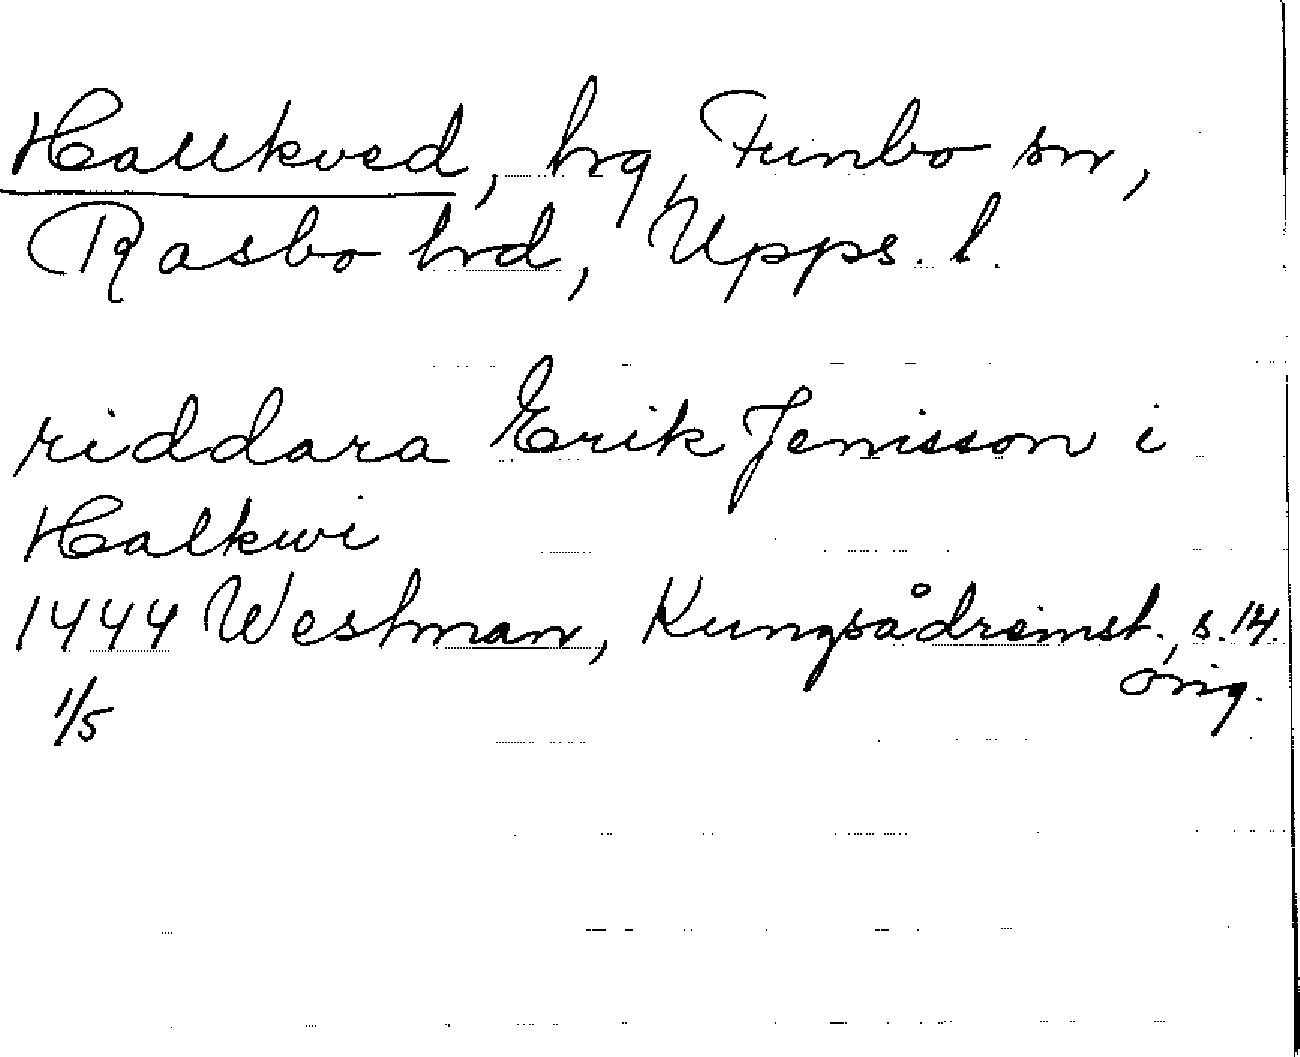 Hallkved, hrg, Funbo sn,
Rasbo hrd, Upps. l.
riddara Erik Jenisson i
Halkwi
1444 Westman, Kungsådreinst., s. 14.
orig.
1/5